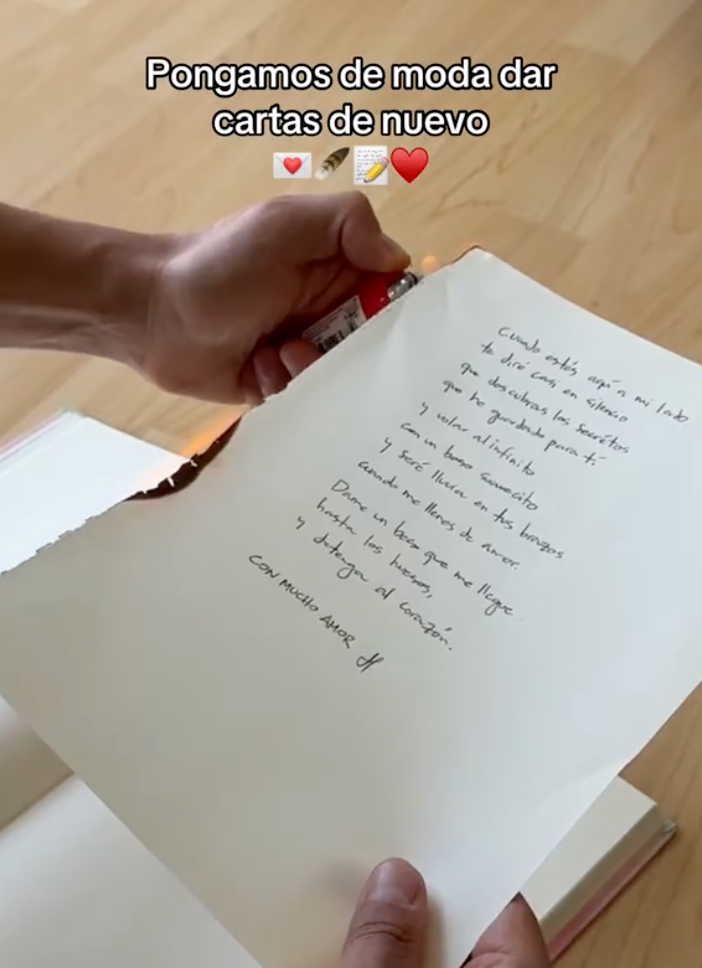 Pongamos de moda dar
cartas de nuevo
Cuando estés aquí a mi lado
te diré casi en silencio
que descubras los secretos
que he guardado para ti
y volar al infinito
con un beso suavecito
y seré lluvia en tus brazos
cuando me llenes de amor.
Dame un beso que me llegue
hasta los huesos,
y detenga al corazón.
CON MUCHO AMOR